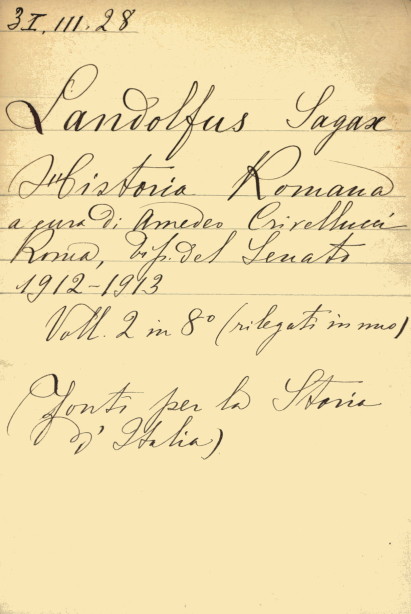 3I.III.28
Landolfus Sagax
Historia Romana
a cura di Amedeo Crivellucci
Roma, tip. del Senato
1912-1913
Voll. 2 in 8º (rilegati in uno)
(Fonti per la Storia
d'Italia)